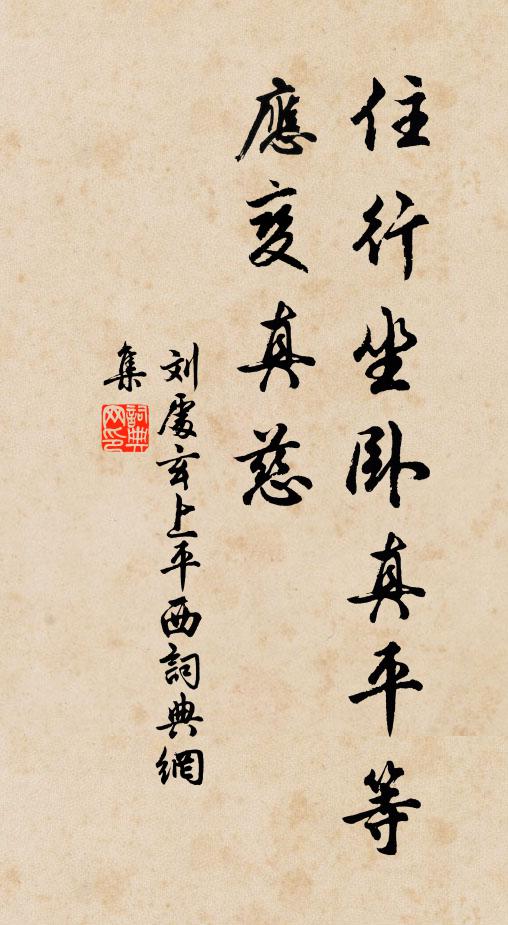 住行坐卧真平等
應变真慈
刘處玄上平西詞典網
集
詞典
网印